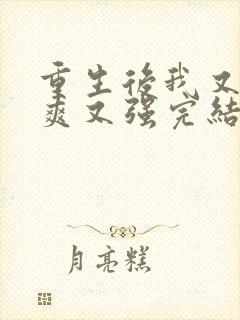 重生後我又
爽又强完結
月亮糕